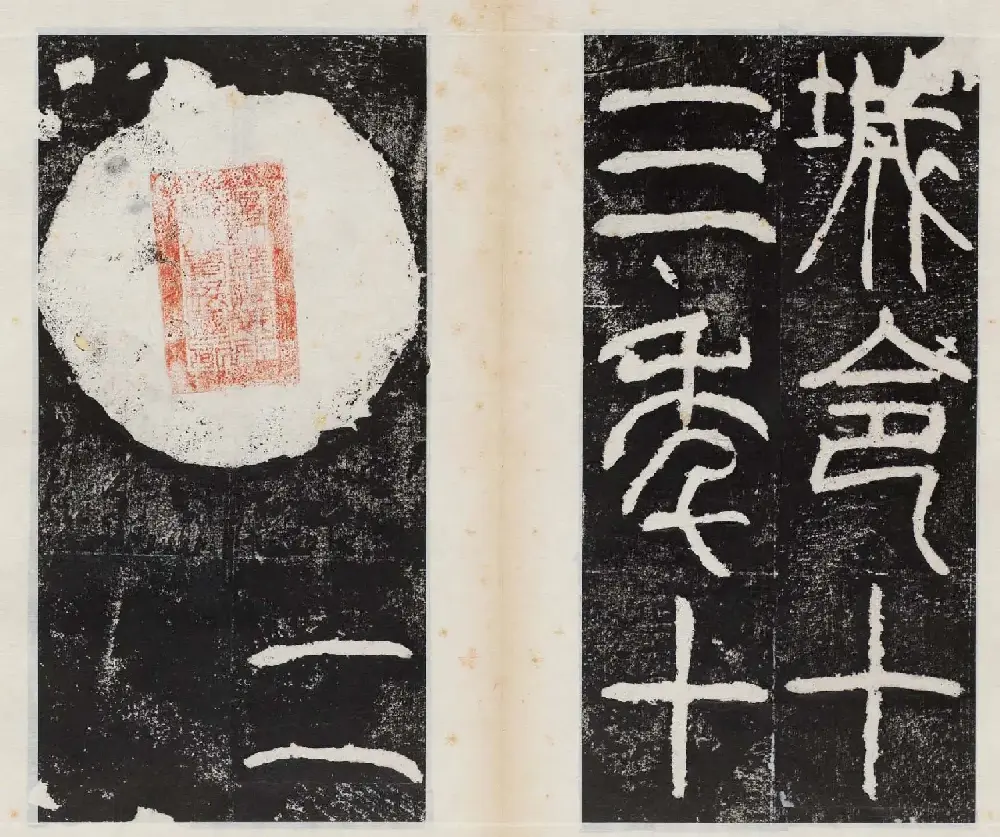 城令十
三年十
二